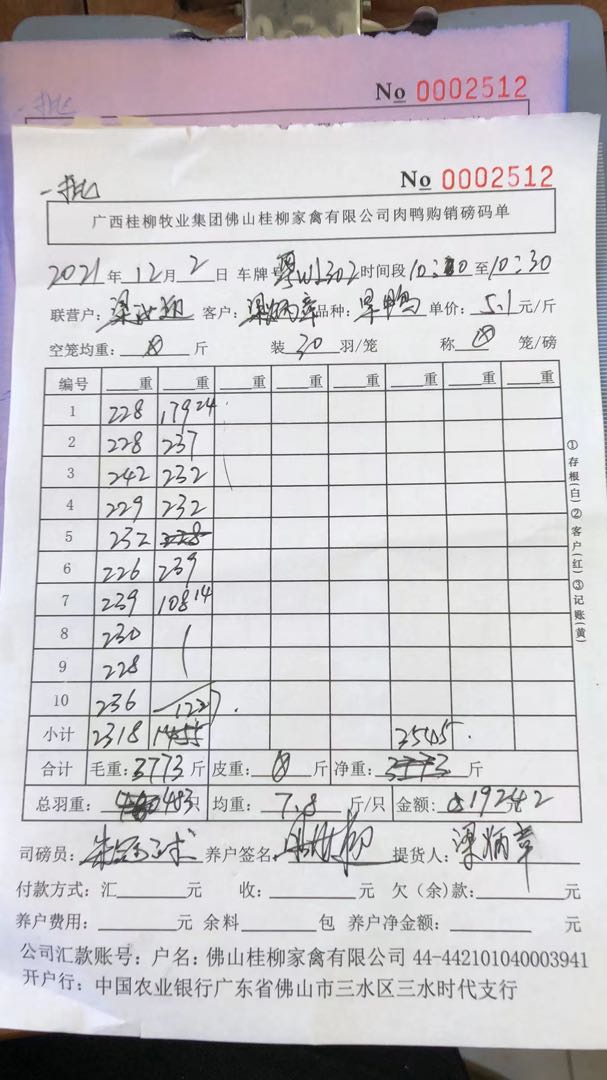 No 0002512
一批
No 0002512
一批
广西桂柳牧业集团佛山桂柳家禽有限公司肉鸭购销磅码单
2021年12月2日 车牌号 粤W1302 时间段 10:30 至 10:30
联营户: 客户: 梁炳章 品种: 旱鸭 单价: 5.1 元/斤
空笼均重: 斤 装 30 羽/笼 称 笼/磅
编号 重 重 重 重 重 重 重 重
1 228 179 24
2 228 237
3 242 232
4 229 232
5 232 228
6 226 239
7 239 108 14
8 230
9 228
10 236 1227
小计 2318 1455 3545
合计 毛重: 3773 斤 皮重: 0 斤 净重: 3773 斤
总羽重: 483 只 均重: 7.8 斤/只 金额: 19242
司磅员: 养户签名 提货人: 梁炳章
付款方式: 汇 元 收: 元 欠(余)款: 元
养户费用: 元 余料 包 养户净金额: 元
公司汇款账号: 户名: 佛山桂柳家禽有限公司 44-442101040003941
开户行: 中国农业银行广东省佛山市三水区三水时代支行
①存根(白)②客户(红)③记账(黄)